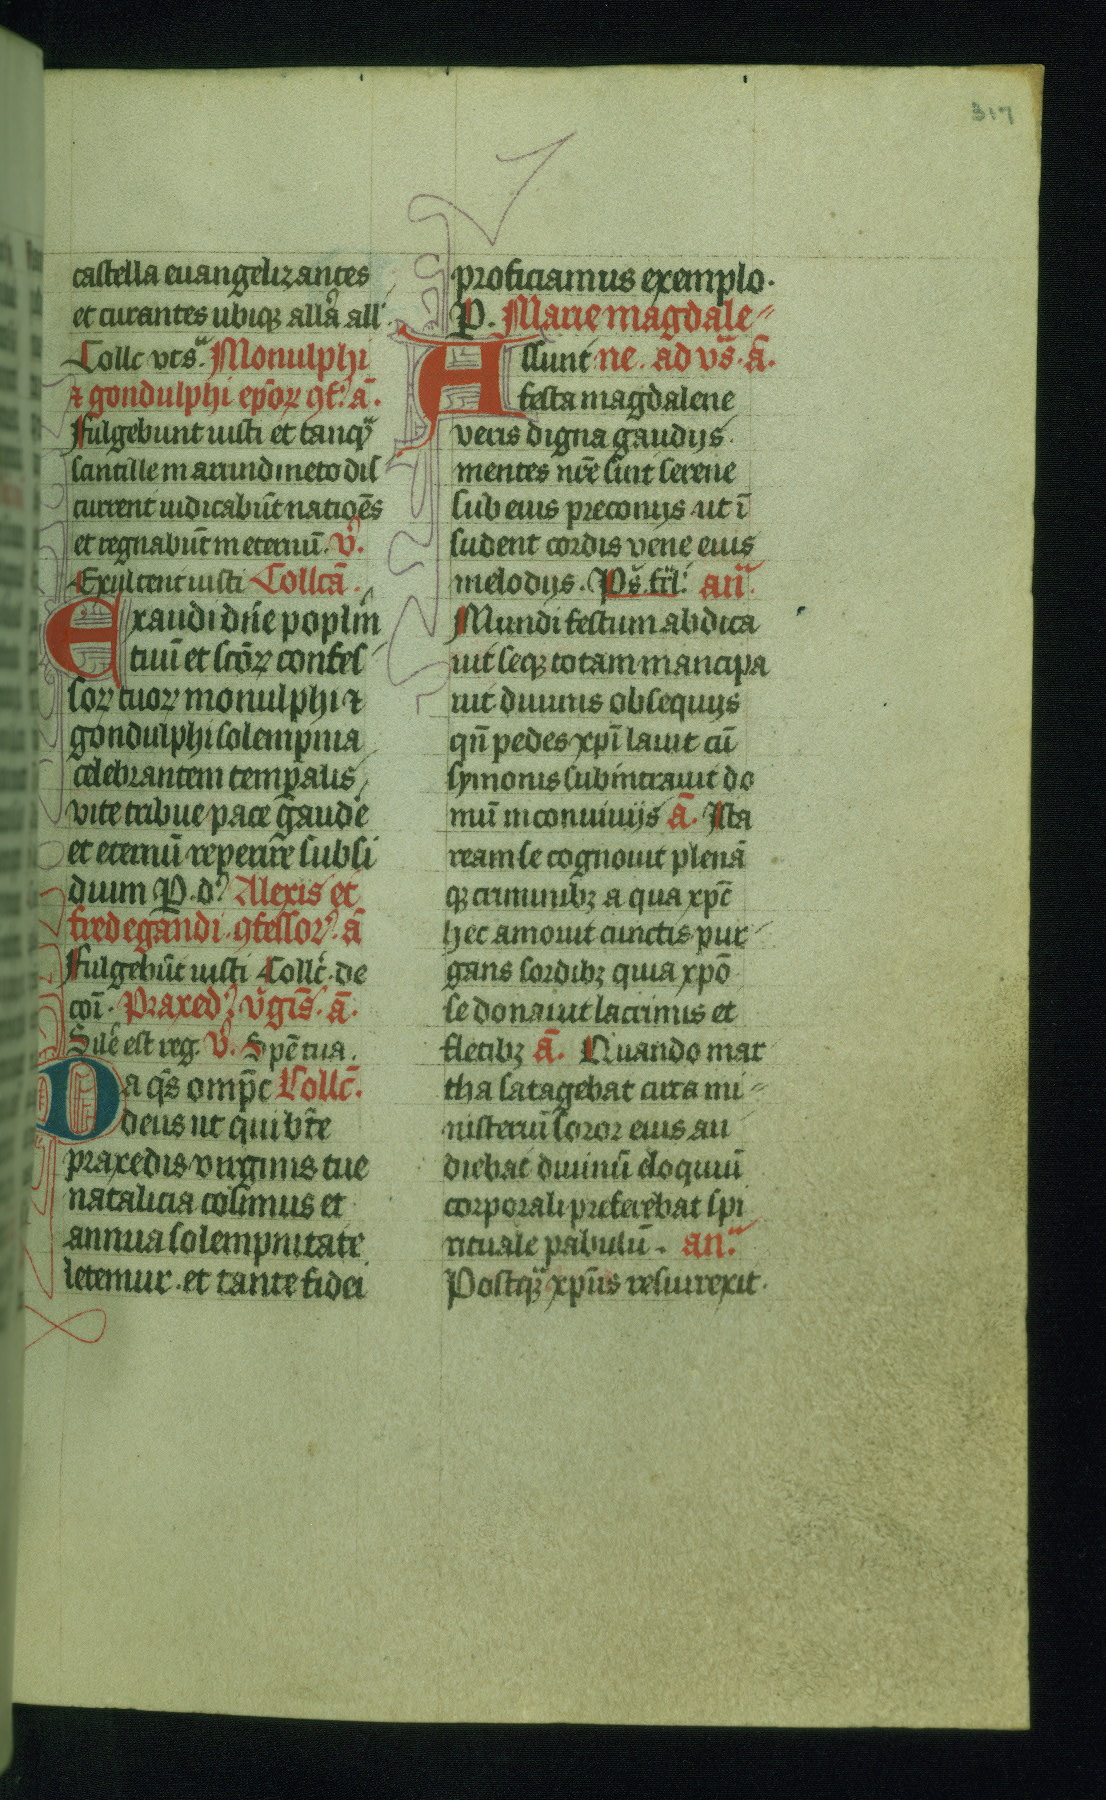 317
castella euangelizantes
et curantes ubiqz alla all
Collc vts Monulphi
⁊ gondulphi epoꝝ ꝯf. a̅.
Fulgebunt iusti et tanqȝ
scintille in arundineto dis
current iudicabu̅t natioe̅s
et regnabu̅t in eternu̅. v̅.
Exultent iusti Collca̅.
Exaudi dn̅e poplm̅
tuu̅ et sco̅ꝝ confes
soꝝ tuoꝝ monulphi ⁊
gondulphi solempnia
celebrantem temp̅alis
vite tribue pace gaude̅
et eternu̅ reperire subsi
dium P. d. Alexis et
fredegandi ꝯfessoꝝ. a̅
Fulgebu̅t iusti Collc̅. de
coi̅. Praxed v̅gis̅. a̅.
Sile̅ est reg. v̅. Spe̅ tua.
Da qs̅ omp̅c Collc̅.
deus ut qui bt̅e
praxedis virginis tue
natalicia colimus et
annua solempnitate
letemur. et tante fidei
proficiamus exemplo.
P. Marie magdale
Assunt ne. ad vs̅. a̅.
festa magdalene
veris digna gaudijs.
mentes nr̅e sint serene
sub eius preconijs ut i̅
sudent cordis vene eius
melodijs. Ps̅. fr̅l. an̅.
Mundi festum abdica
uit seqȝ totam mancipa
uit diuinis obsequijs
qn̅ pedes xpi̅ lauit cu̅
symonis subintrauit do
mu̅ in conuiuijs a̅. Ista
ream se cognouit plena̅
qȝ criminibȝ a qua xpc̅
hec amouit cunctis pur
gans sordibȝ quia xpo̅
se donauit lacrimis et
fletibȝ a̅. Quando mar
tha satagebat circa mi
nisteriu̅ soror eius au
diebat diuinu̅ eloquiu̅
corporali preferebat spi
rituale pabulu̅. an̅.
Postqȝ xpu̅s resurrexit.